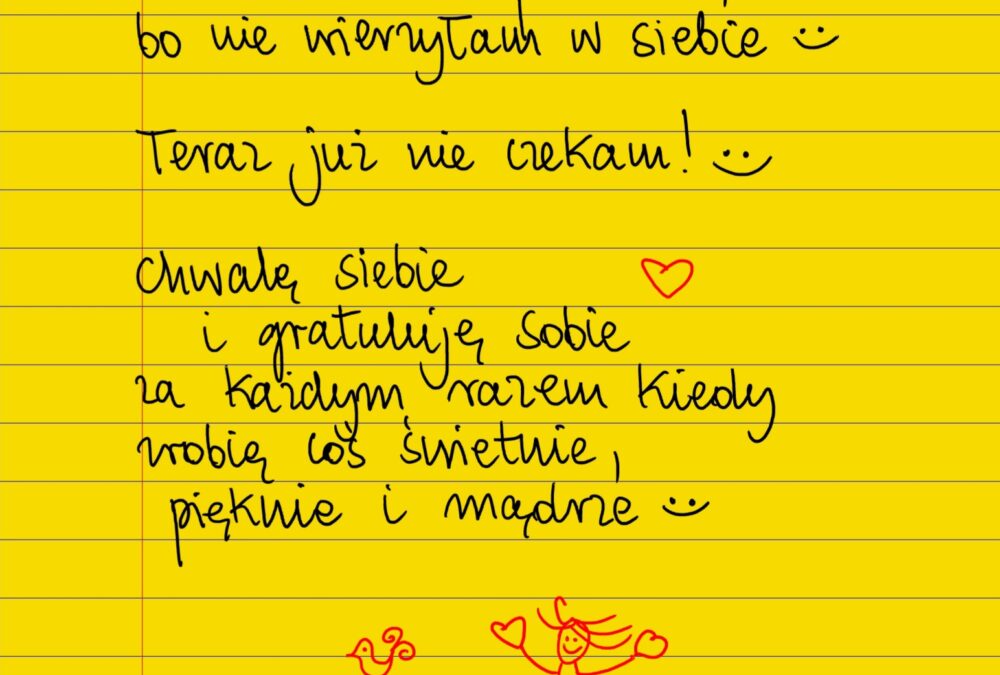 bo nie wierzyłam w siebie
Teraz już nie czekam!
Chwalę siebie
i gratuluję sobie
za każdym razem kiedy
zrobię coś świetnie,
pięknie i mądrze